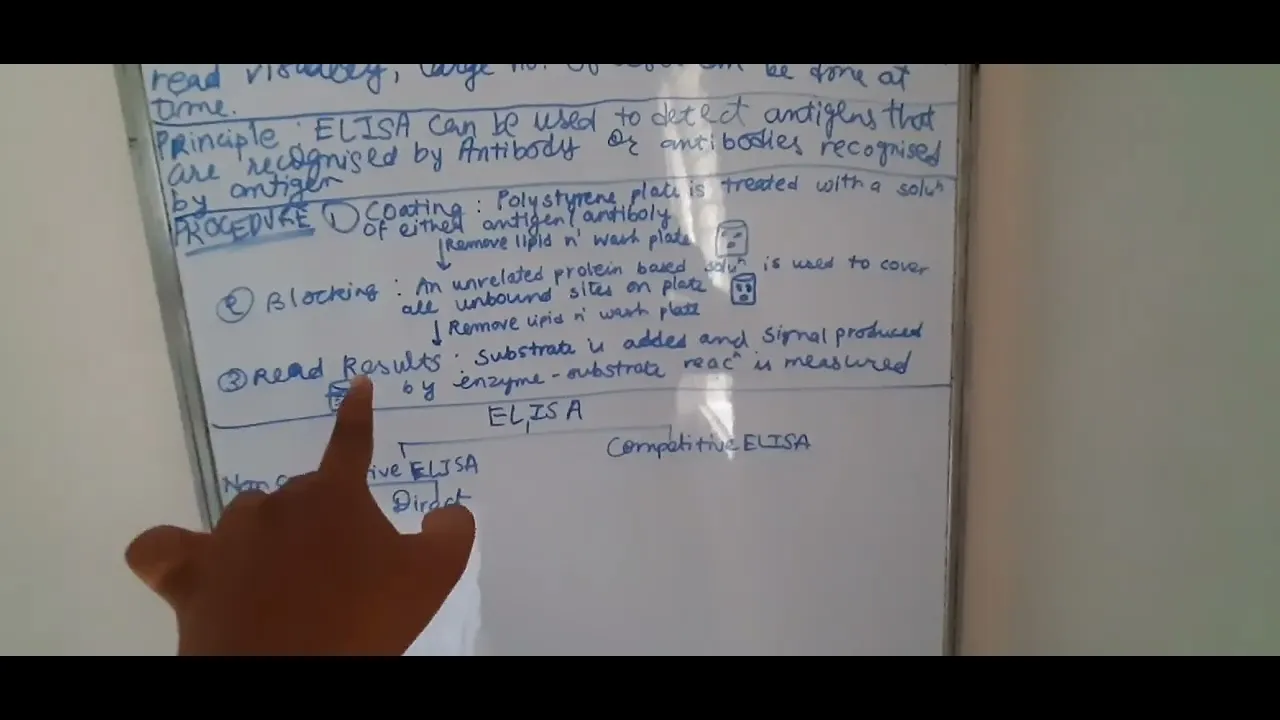 read visually, large no. of be done at
time.
Principle : ELISA can be used to detect antigens that
are recognised by Antibody or antibodies recognised
by antigen
PROCEDURE ① Coating : Polystyrene plate is treated with a soluⁿ
of either antigen/antiboly
Remove lipid n' wash plate
② Blocking : An unrelated protein based soluⁿ is used to cover
all unbound sites on plate
Remove lipid n' wash plate
③ Read Results : Substrate is added and signal produced
by enzyme-substrate reacⁿ is measured
ELISA
Competitive ELISA
ELISA
Direct